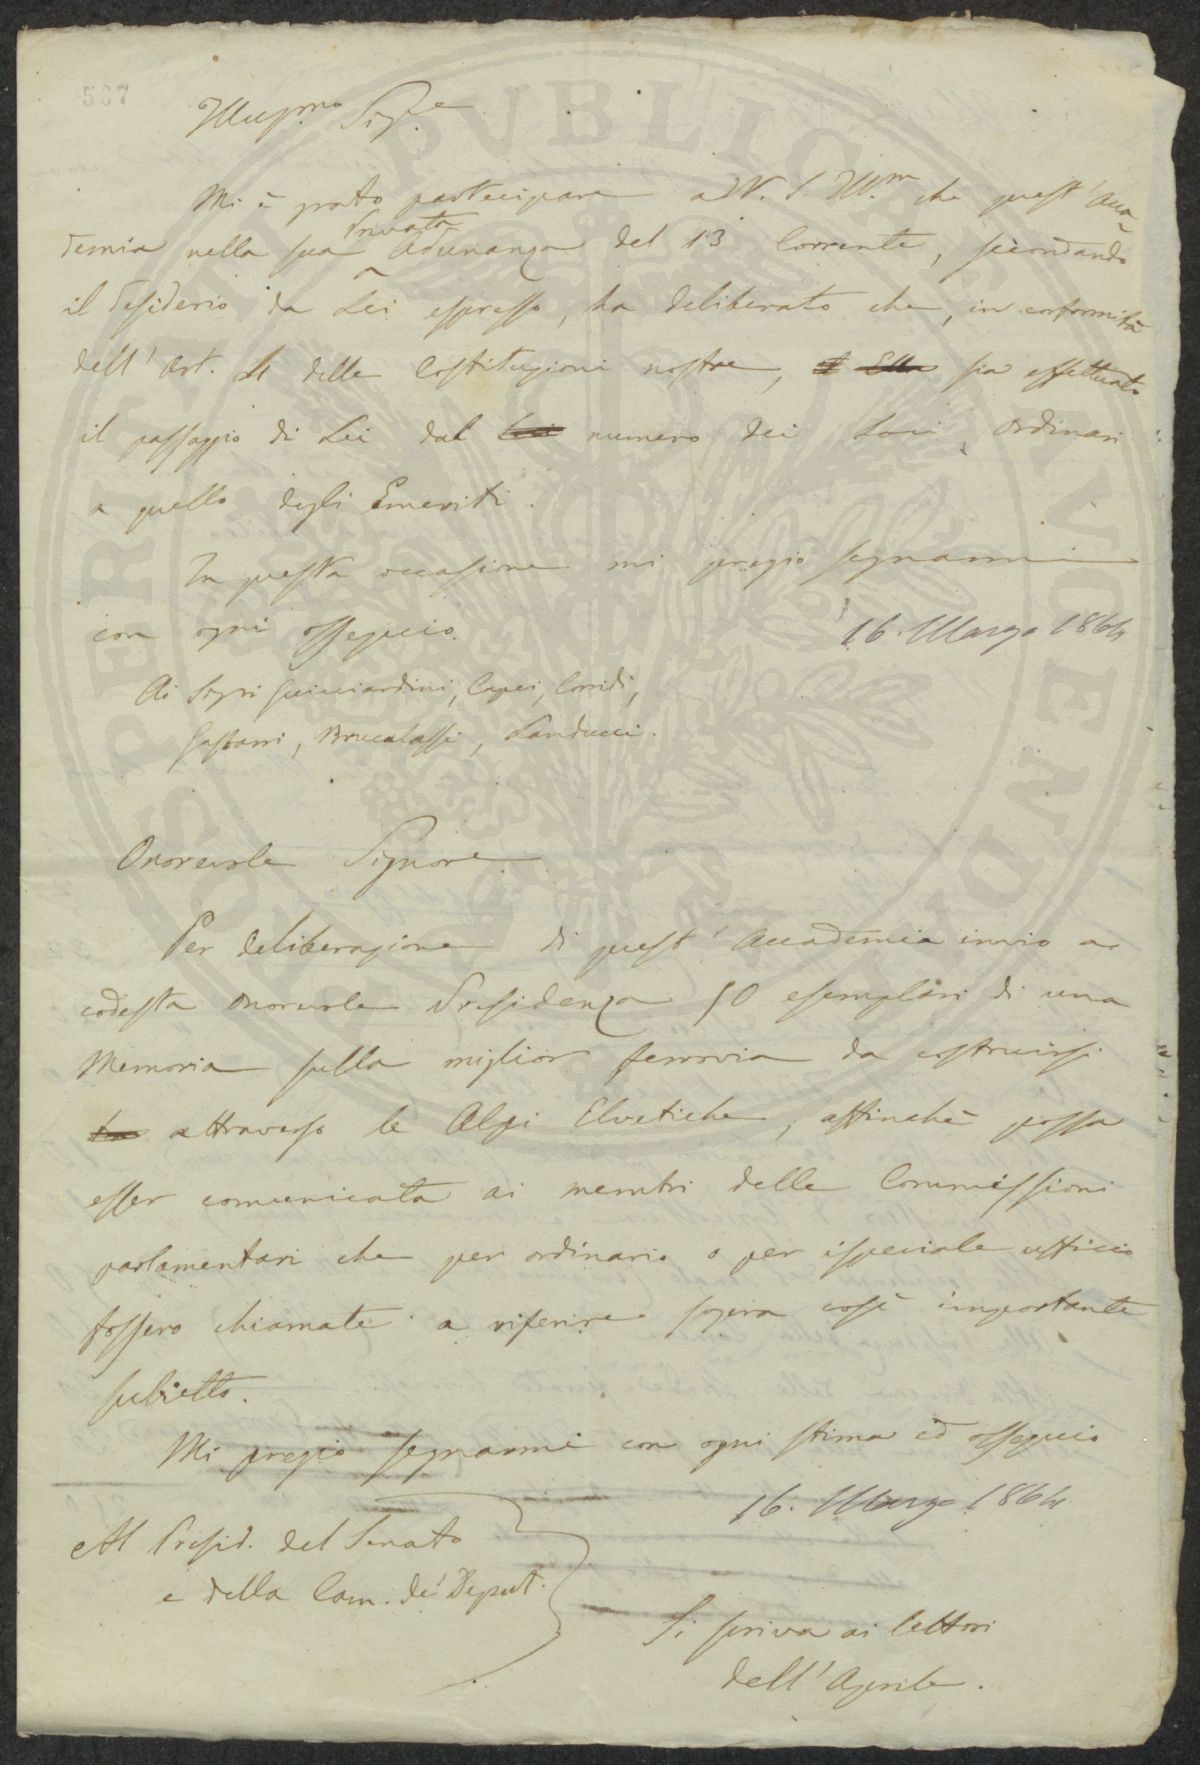 567
Illus.mo Sig.e
Mi è grato partecipare a V. S. Ill.ma che quest'Acca-
demia nella sua privata Adunanza del 13 Corrente, secondando
il desiderio da Lei espresso, ha deliberato che, in conformità
dell'Art. 11 delle Costituzioni nostre, Ella sia effettuato
il passaggio di Lei dal numero dei Soci Ordinari
a quello degli Emeriti.
In questa occasione mi pregio segnarmi
con ogni ossequio.
16. Marzo 1864
Ai Sigri Guicciardini, Capei, Corridi,
Gasbarri, Brucalassi, Landucci.
Onorevole Signore
Per deliberazione di quest'Accademia invio a
codesta onorevole Presidenza 50 esemplari di una
Memoria sulla miglior ferrovia da costruirsi
attraverso le Alpi Elvetiche, affinchè possa
esser comunicata ai membri delle Commissioni
parlamentari che per ordinario o per ispeciale ufficio
fossero chiamate a riferire sopra così importante
subietto.
Mi pregio segnarmi con ogni stima ed ossequio
16. Marzo 1864
Al Presid. del Senato
e della Cam. de' Deput.
Si scriva ai lettori
dell'Aprile.